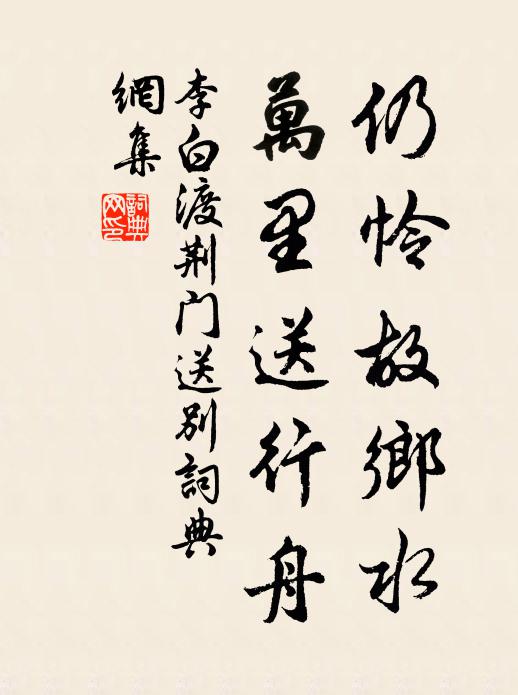 仍怜故鄉水
萬里送行舟
李白渡荆门送别詞典
網集
詞典
网印